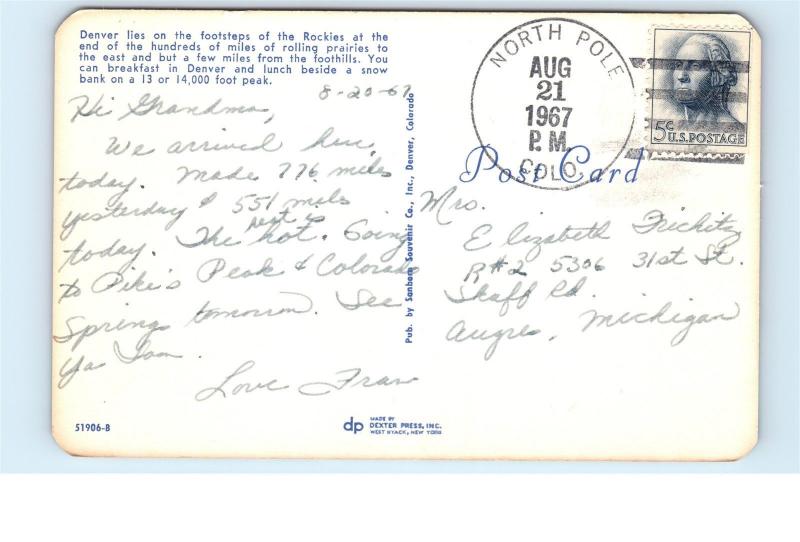 Denver lies on the footsteps of the Rockies at the
end of the hundreds of miles of rolling prairies to
the east and but a few miles from the foothills. You
can breakfast in Denver and lunch beside a snow
bank on a 13 or 14,000 foot peak.
8-20-67
Hi Grandma,
We arrived here
today. Made 776 miles
yesterday & 551 miles
today. The heat is hot. Going
to Pike's Peak & Colorado
Springs tomorrow. See
Ya Soon.
Love Fran
51906-B
Pub. by Sanborn Souvenir Co., Inc., Denver, Colorado
dp
MADE BY
DEXTER PRESS, INC.
WEST NYACK, NEW YORK
NORTH POLE
AUG
21
1967
P.M.
COLO.
5¢ U.S. POSTAGE
Post Card
Mrs.
Elizabeth
R#2 5306 31st St.
Skaff Rd.
Augres, Michigan